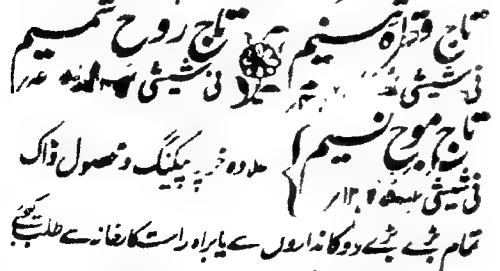 تاج قطرہ تسنیم تاج روح شمیم
فی شیشی فی شیشی
تاج موج نسیم
علاوہ خرچہ پیکنگ و محصول ڈاک
فی شیشی
تمام بڑے بڑے دوکانداروں سے یا براہ راست کارخانہ سے طلب کیجئے